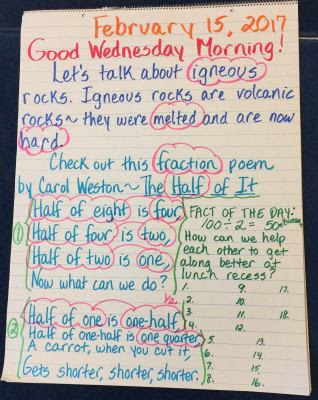 February 15, 2017
Good Wednesday Morning!
Let's talk about igneous
rocks. Igneous rocks are volcanic
rocks~ they were melted and are now
hard.
Check out this fraction poem
by Carol Weston~ The Half of It
① Half of eight is four,
Half of four is two,
Half of two is one,
Now what can we do?
1/2
② Half of one is one-half,
Half of one-half is one quarter,
A carrot, when you cut it,
Gets shorter, shorter, shorter.
FACT OF THE DAY:
100 ÷ 2 = 50
How can we help
each other to get
along better at
lunch recess?
1. 9. 17.
2. 10.
3. 11. 18.
4. 12.
5. 13.
6. 14.
7. 15.
8. 16.